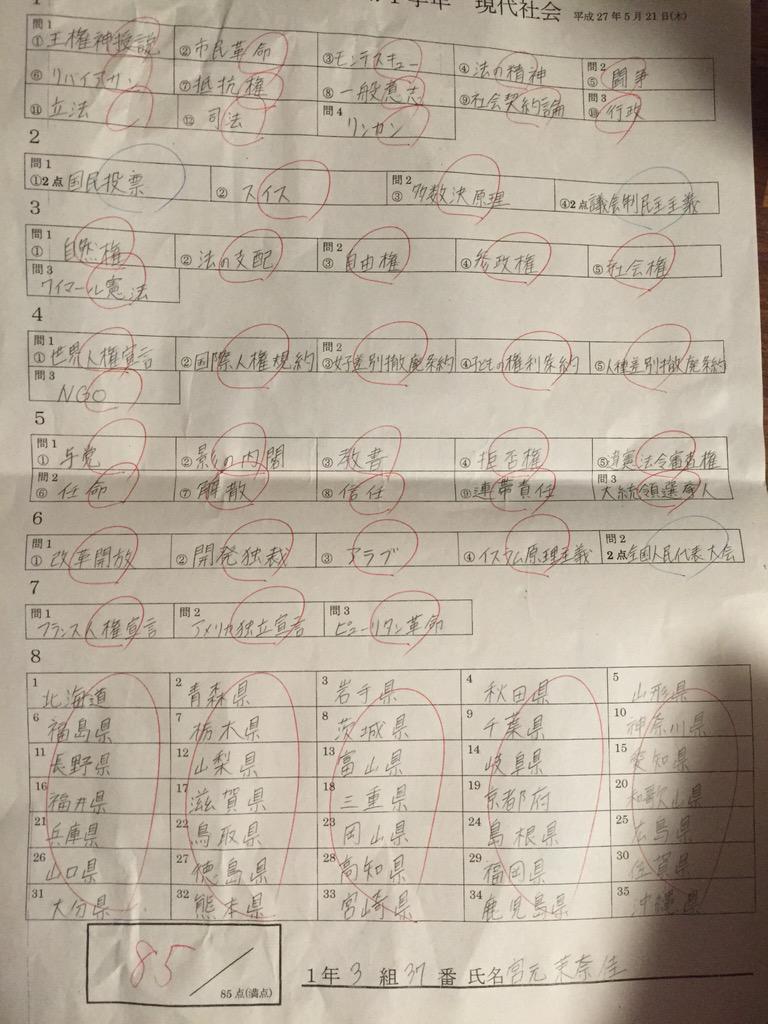 1学年 現代社会 平成27年5月21日(木)
問1 ①王権神授説 ②市民革命 ③モンテスキュー ④法の精神 問2 ⑤闘争
⑥リバイアサン ⑦抵抗権 ⑧一般意志 ⑨社会契約論 問3 ⑩行政
⑪立法 ⑫司法 問4 リンカン
2
問1 ①2点 国民投票 ② スイス 問2 ③ 多数決原理 ④2点 議会制民主主義
3
問1 ① 自然権 ② 法の支配 問2 ③ 自由権 ④ 参政権 ⑤ 社会権
問3 ワイマール憲法
4
問1 ①世界人権宣言 ②国際人権規約 問2 ③女子差別撤廃条約 ④子どもの権利条約 ⑤人種差別撤廃条約
問3 NGO
5
問1 ① 与党 ②影の内閣 ③ 教書 ④ 拒否権 ⑤違憲法令審査権
問2 ⑥ 任命 ⑦ 解散 ⑧ 信任 ⑨連帯責任 問3 大統領選挙人
6
問1 ① 改革開放 ② 開発独裁 ③ アラブ ④ イスラム原理主義 問2 2点 全国人民代表大会
7
問1 フランス人権宣言 問2 アメリカ独立宣言 問3 ピューリタン革命
8
1 北海道 2 青森県 3 岩手県 4 秋田県 5 山形県
6 福島県 7 栃木県 8 茨城県 9 千葉県 10 神奈川県
11 長野県 12 山梨県 13 富山県 14 岐阜県 15 愛知県
16 福井県 17 滋賀県 18 三重県 19 京都府 20 和歌山県
21 兵庫県 22 鳥取県 23 岡山県 24 島根県 25 広島県
26 山口県 27 徳島県 28 高知県 29 福岡県 30 佐賀県
31 大分県 32 熊本県 33 宮崎県 34 鹿児島県 35 沖縄県
85
85点(満点)
1年 3 組 37 番 氏名 宮元 茉奈佳